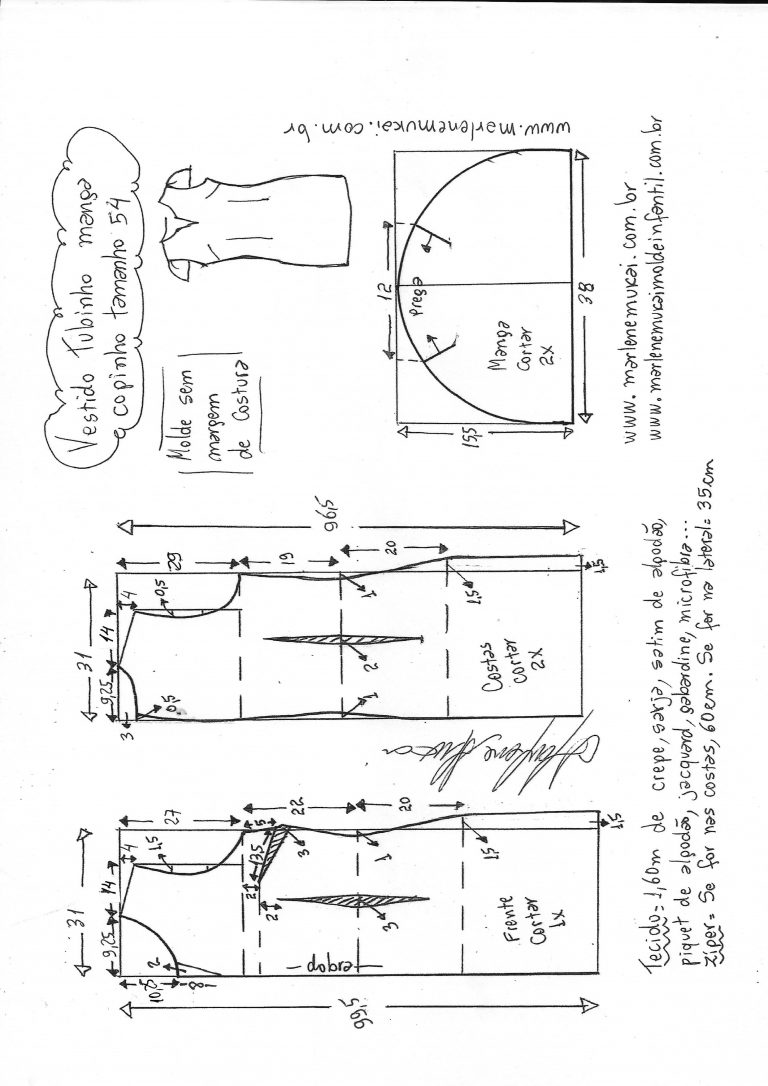 Vestido Tubinho manga
copinho tamanho 54
Molde sem
margem
de Costura
www.marlenemukai.com.br
12
Prega
Manga
Cortar
2x
15,5
38
www.marlenemukai.com.br
www.marlenemukaimoldeinfantil.com.br
96,5
29
19
20
31
14
4
9,25
3
0,5
0,5
1
1
2
1,5
1,5
Costas
Cortar
2x
99,5
27
22
20
31
14
4
9,25
10,5
8
2
1,5
5
13,5
3
2
2
3
1
1,5
1,5
dobra
Frente
Cortar
1x
Tecido= 1,60m de crepe, sarja, satim de algodão,
piquet de algodão, jacquard, gabardine, microfibra...
Ziper= Se for nas costas, 60cm. Se for na lateral= 35cm